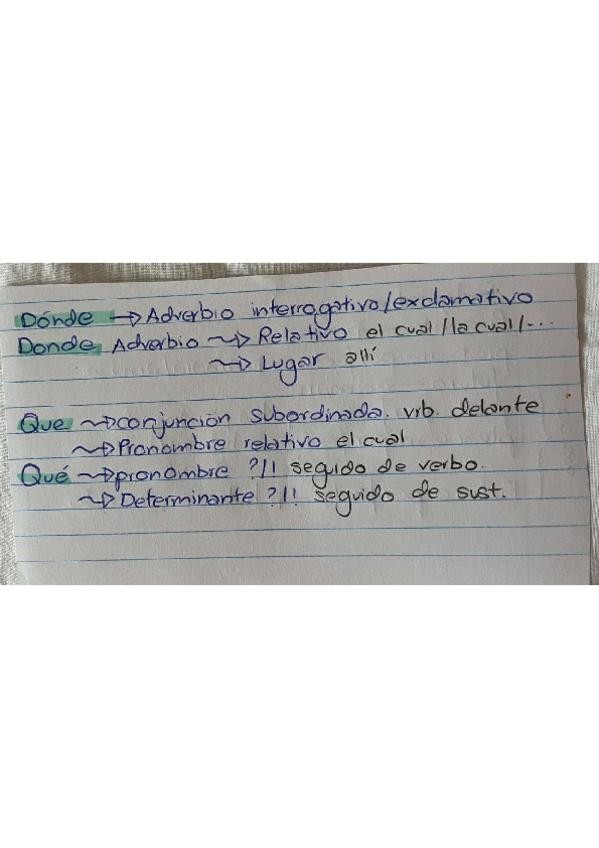 Dónde → Adverbio interrogativo/exclamativo
Donde Adverbio → Relativo el cual/la cual/...
→ Lugar allí
Que → conjunción subordinada. vrb. delante
→ Pronombre relativo el cual
Qué → pronombre ?/! seguido de verbo.
→ Determinante ?/! seguido de sust.